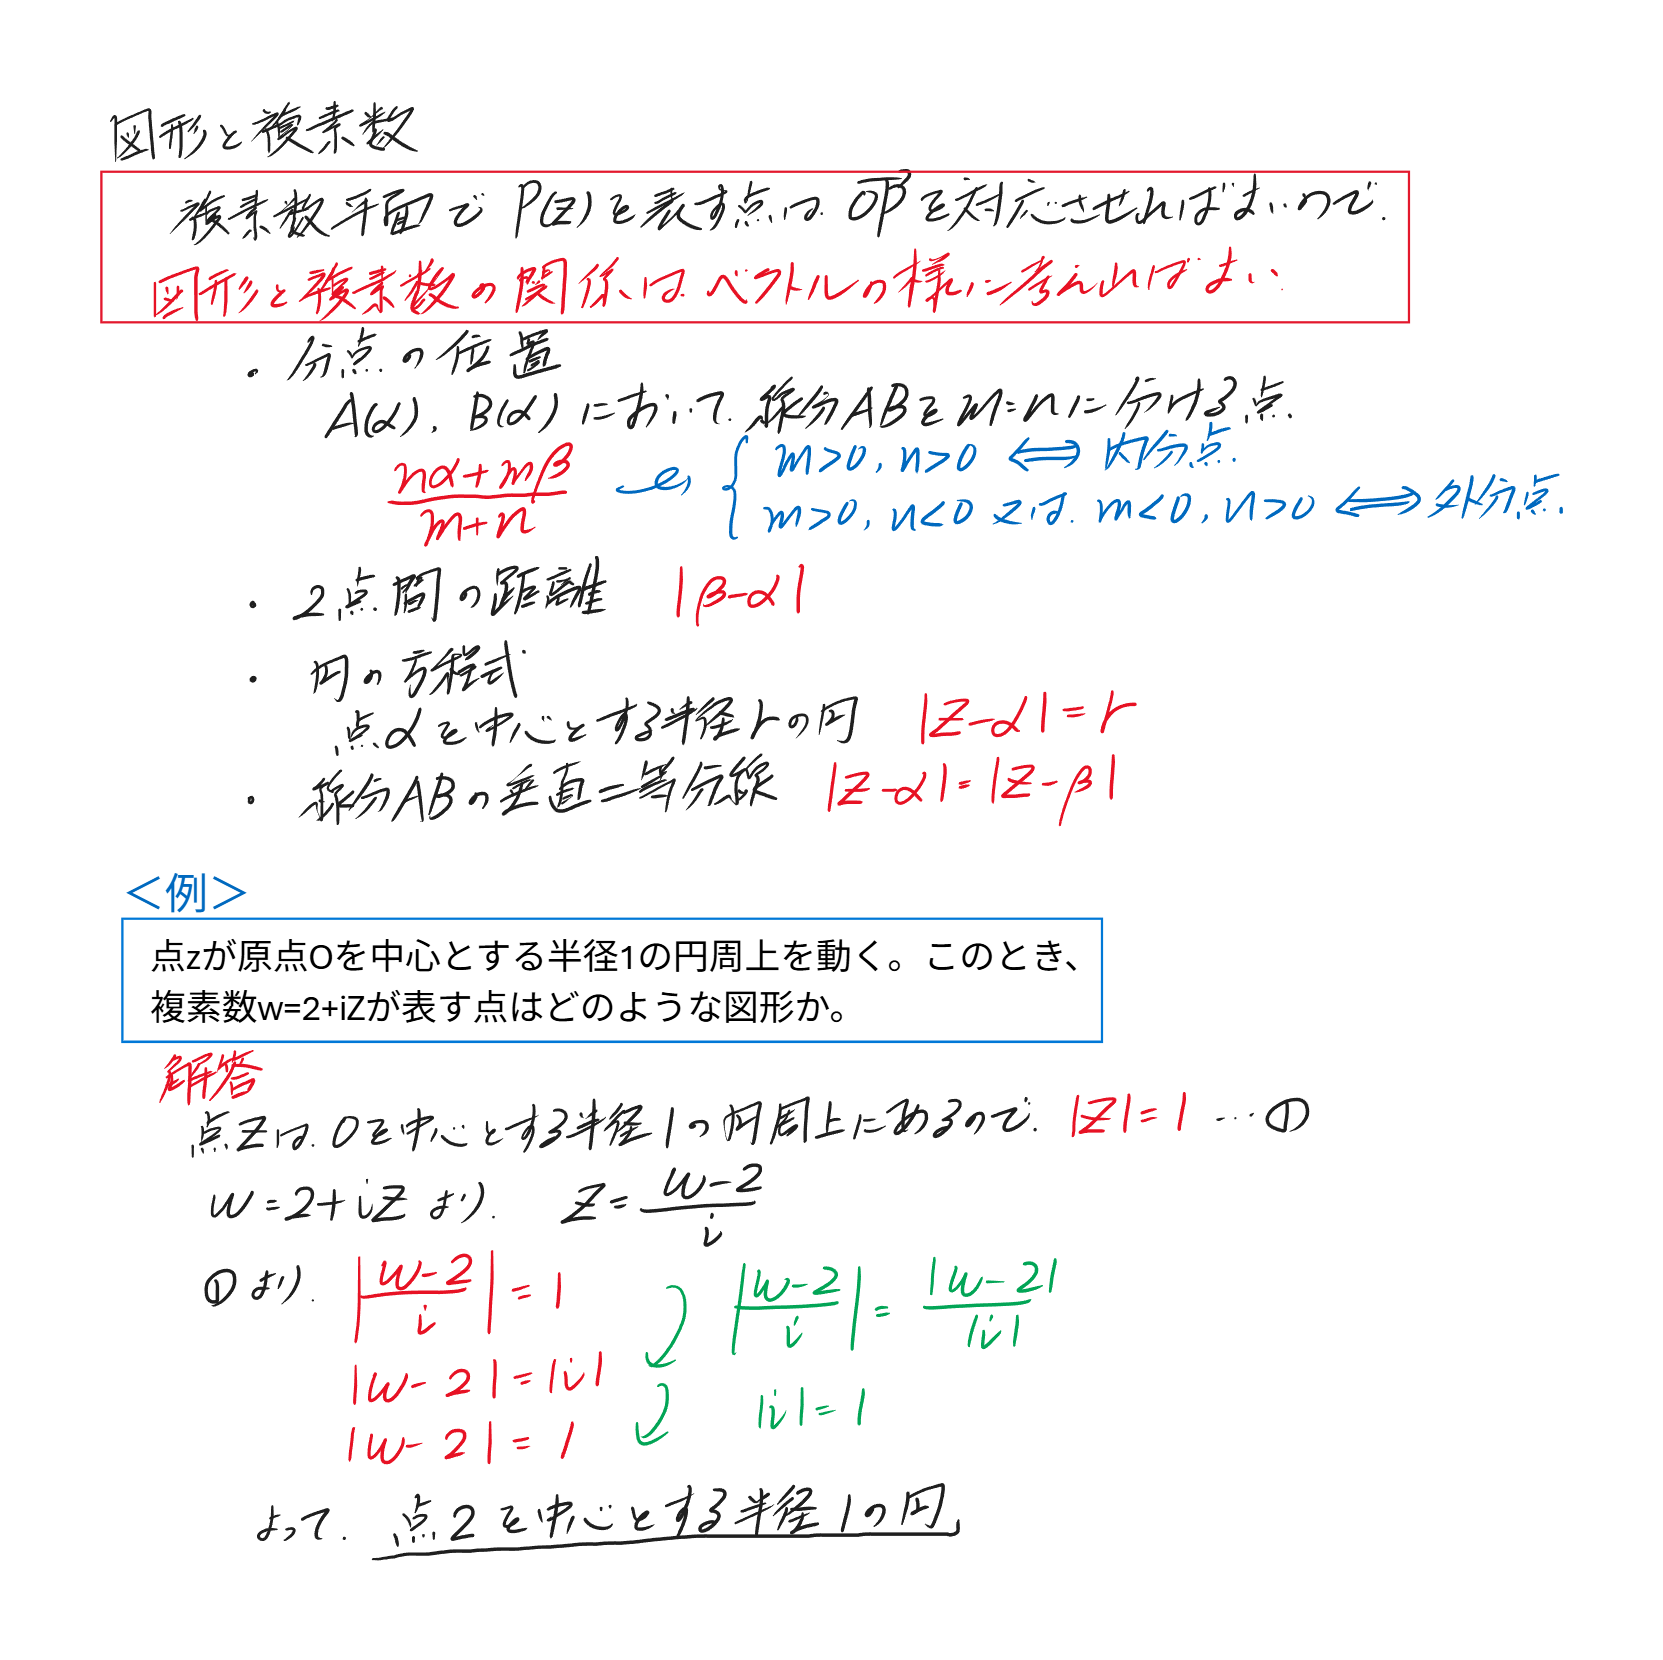 図形と複素数
複素数平面で P(z)を表す点は OPを対応させればよいので.
図形と複素数の関係はベクトルの様に考えればよい.
・分点の位置
A(α), B(α)において. 線分ABをm:nに分ける点.
nα+mβ/m+n { m>0, n>0 ⇔ 内分点.
m>0, n<0 又は. m<0, n>0 ⇔ 外分点.
・2点間の距離 |β-α|
・円の方程式
点αを中心とする半径rの円 |z-α|=r
・線分ABの垂直二等分線 |z-α|=|z-β|
＜例＞
点zが原点Oを中心とする半径1の円周上を動く。このとき、
複素数w=2+iZが表す点はどのような図形か。
解答
点zは. Oを中心とする半径1の円周上にあるので. |z|=1 …①
w=2+iz より. z=w-2/i
①より. |w-2/i|=1 |w-2/i|=|w-2|/|i|
|w-2|=|i|
|i|=1
|w-2|=1
よって. 点2を中心とする半径1の円